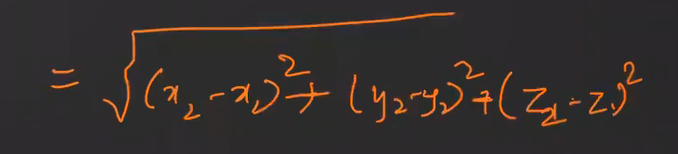 = √(x₂-x₁)² + (y₂-y₁)² + (z₂-z₁)²